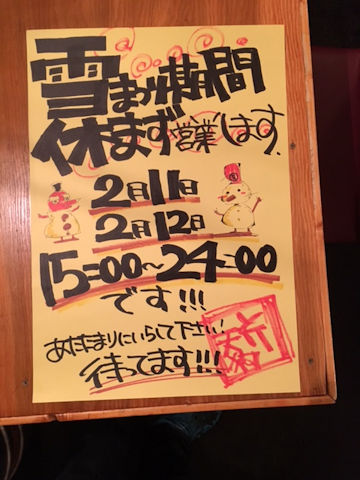 雪まつり期間
休まず営業します。
2月11日
2月12日
15:00〜24:00
です!!!
あたたまりにいらして下さい!
待ってます!!!